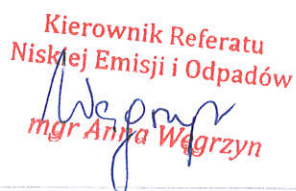 Kierownik Referatu
Niskiej Emisji i Odpadów
Węgrzyn
mgr Anna Węgrzyn